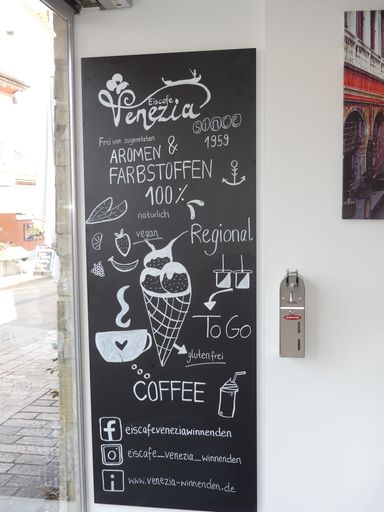 Eiscafe
Venezia
SINCE
1959
Frei von zugesetzten
AROMEN &
FARBSTOFFEN
100%
natürlich
vegan
Regional
To Go
glutenfrei
COFFEE
f eiscafeveneziawinnenden
eiscafe_venezia_winnenden
i www.venezia-winnenden.de